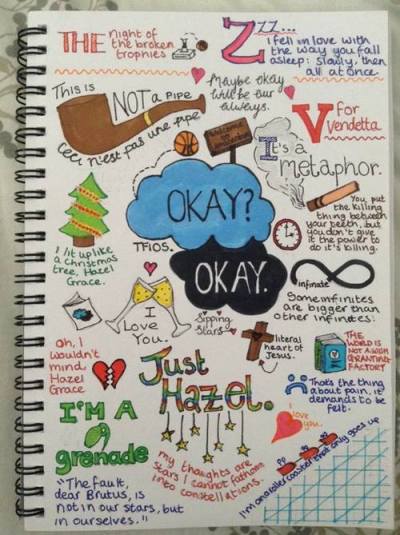 THE night of
the broken
trophies
Zzz...
i fell in love with
the way you fall
asleep: slowly, then
all at once.
Maybe okay
will be our
always.
This is
NOT a pipe
Ceci n'est pas une pipe
V for
Vendetta
Welcome
to
It's a
metaphor.
You put
the killing
thing between
your teeth, but
you don't give
it the power to
do it's killing.
OKAY?
OKAY.
TFIOS.
I lit up like
a christmas
tree, Hazel
Grace.
I
Love
You.
Sipping
Stars
infinate
Some infinites
are bigger than
other infinites.
literal
heart of
Jesus.
THE
WORLD IS
NOT A WISH
GRANTING
FACTORY
Oh, I
wouldn't
mind,
Hazel
Grace
Just
Hazel.
That's the thing
about pain, it
demands to be
felt.
I'M A
grenade
I love
you.
my thoughts are
stars I cannot fathom
into constellations.
I'm on a rollercoaster that only goes up
"The fault,
dear Brutus, is
not in our stars, but
in ourselves."